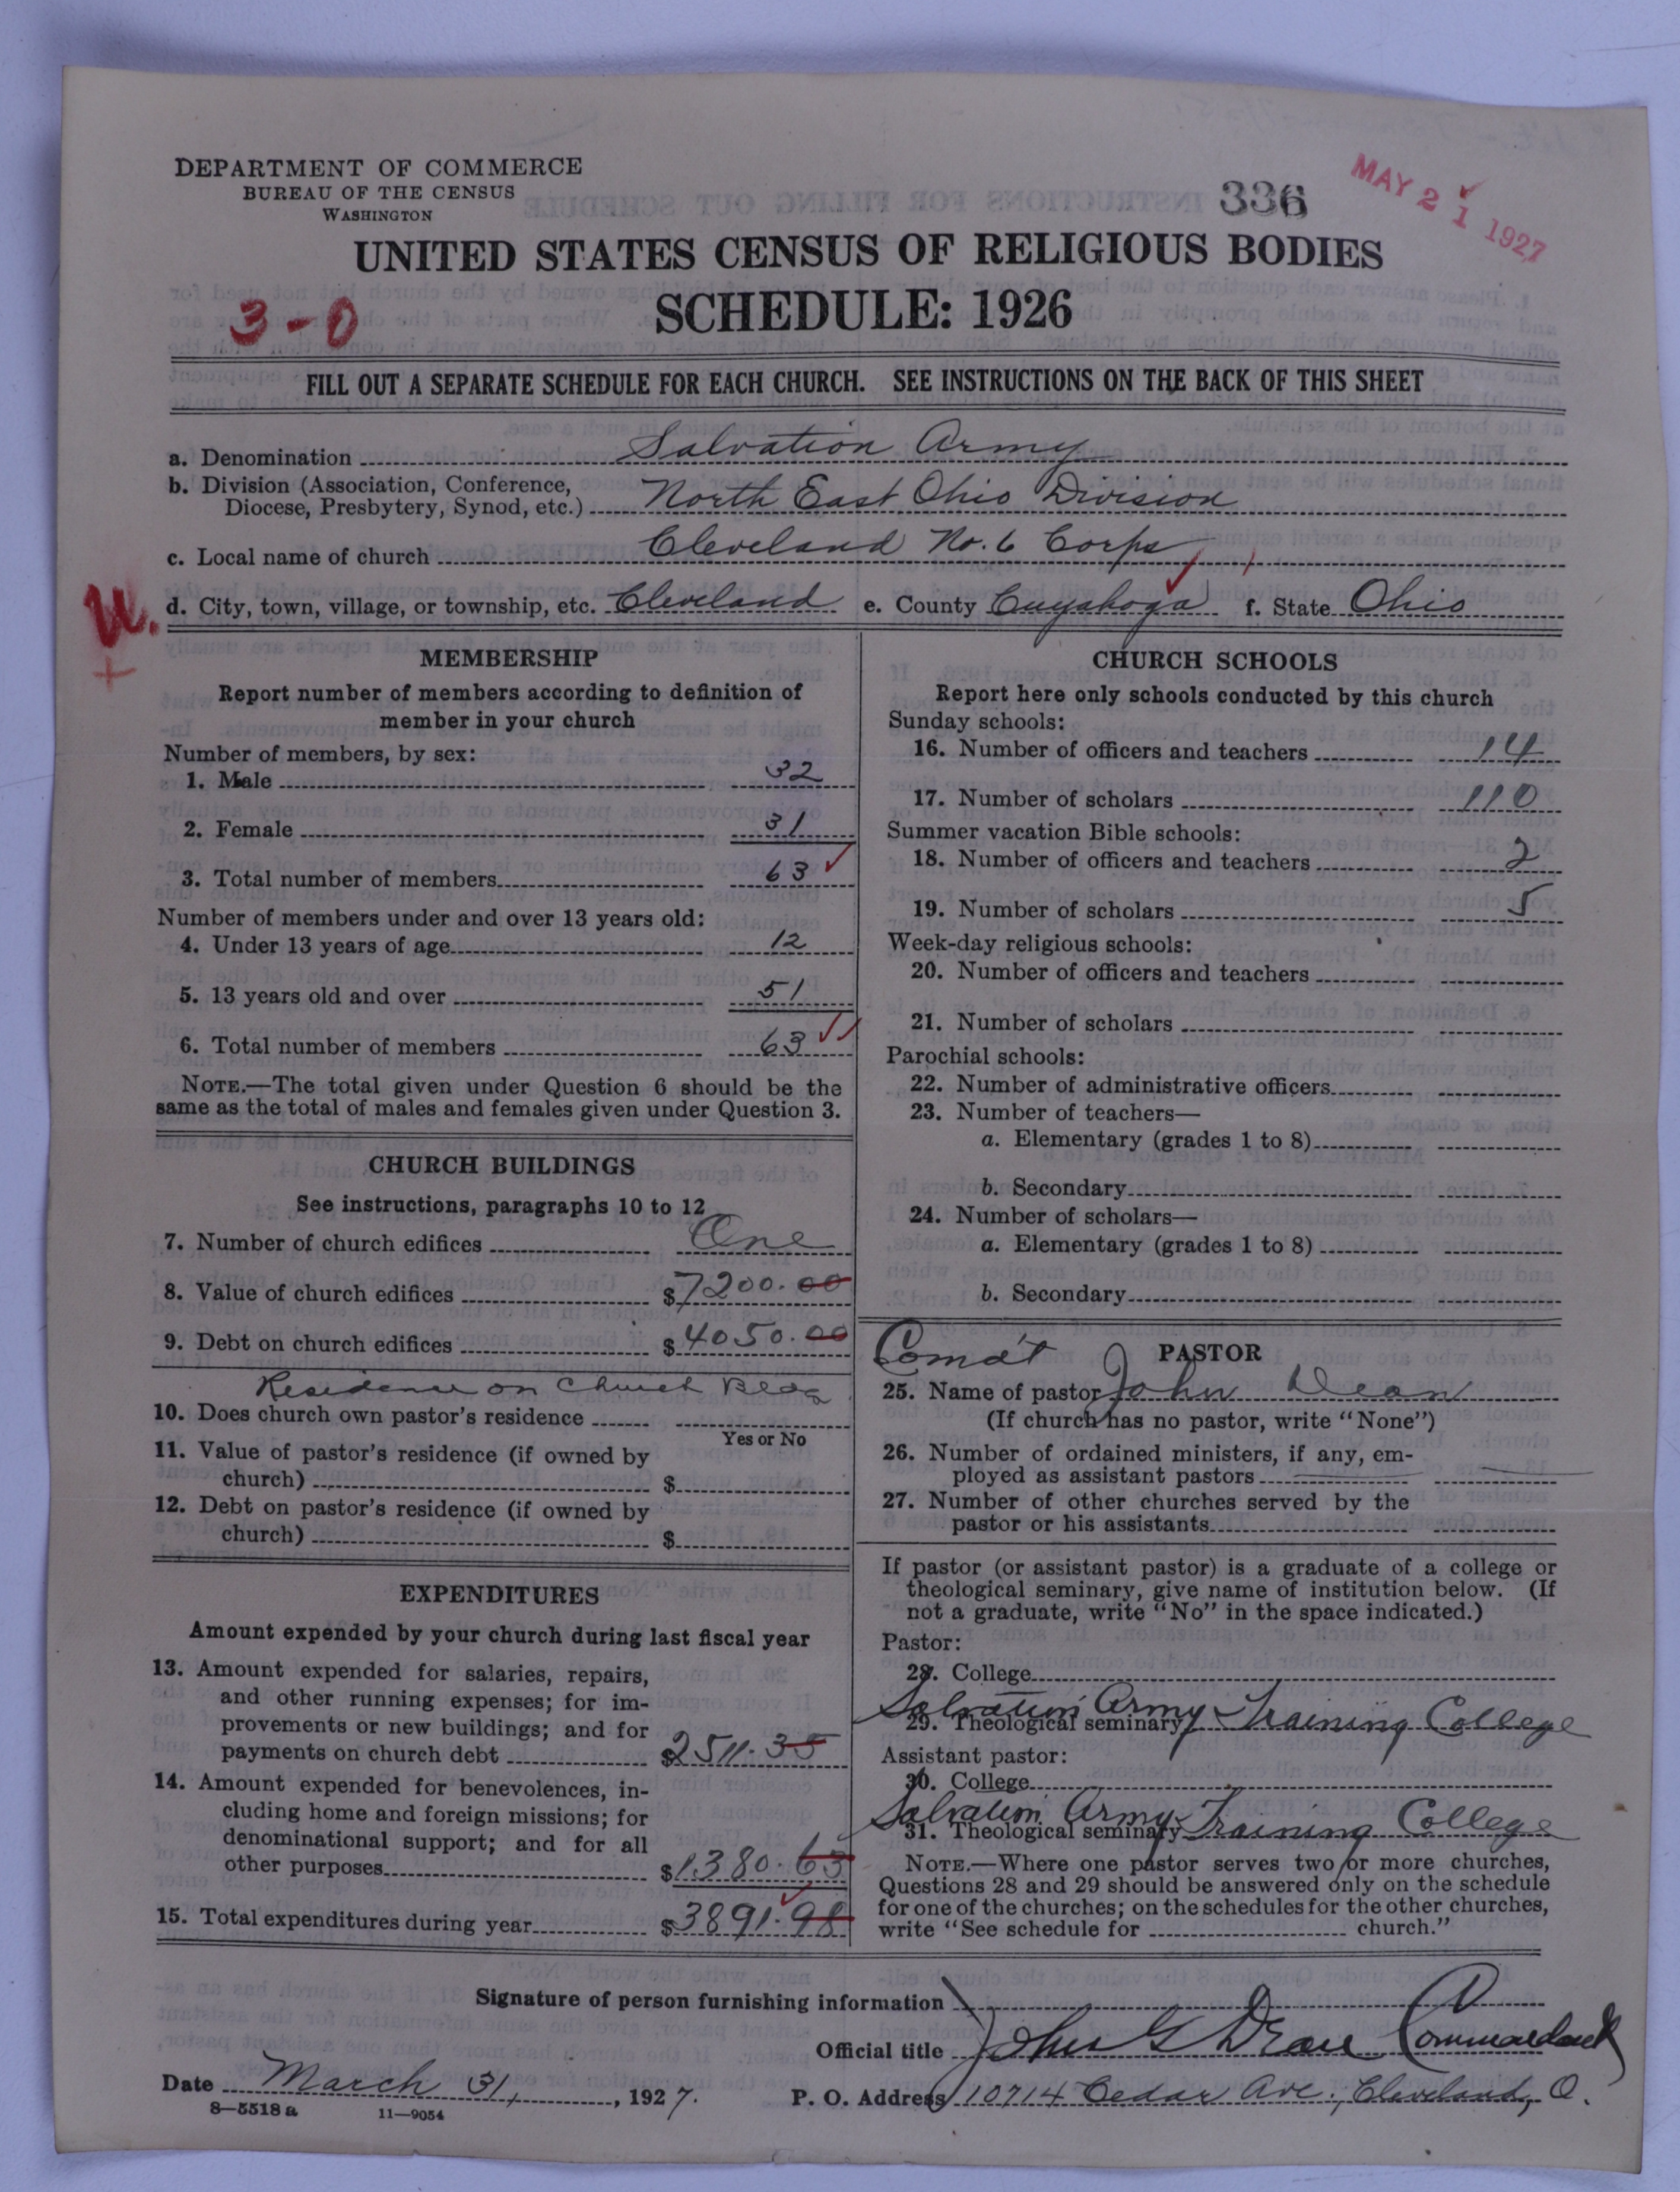 DEPARTMENT OF COMMERCE
BUREAU OF THE CENSUS
WASHINGTON
336
MAY 21 1927
UNITED STATES CENSUS OF RELIGIOUS BODIES
SCHEDULE: 1926
3-0
FILL OUT A SEPARATE SCHEDULE FOR EACH CHURCH. SEE INSTRUCTIONS ON THE BACK OF THIS SHEET
a. Denomination Salvation Army
b. Division (Association, Conference,
Diocese, Presbytery, Synod, etc.) North East Ohio Division
c. Local name of church Cleveland No. 6 Corps
U.
d. City, town, village, or township, etc. Cleveland e. County Cuyahoga f. State Ohio
MEMBERSHIP
Report number of members according to definition of
member in your church
Number of members, by sex:
1. Male 32
2. Female 31
3. Total number of members 63
Number of members under and over 13 years old:
4. Under 13 years of age 12
5. 13 years old and over 51
6. Total number of members 63
NOTE.—The total given under Question 6 should be the
same as the total of males and females given under Question 3.
CHURCH BUILDINGS
See instructions, paragraphs 10 to 12
7. Number of church edifices One
8. Value of church edifices $7200.00
9. Debt on church edifices $4050.00
Residence on Church Bldg
10. Does church own pastor's residence
Yes or No
11. Value of pastor's residence (if owned by
church) $
12. Debt on pastor's residence (if owned by
church) $
EXPENDITURES
Amount expended by your church during last fiscal year
13. Amount expended for salaries, repairs,
and other running expenses; for im-
provements or new buildings; and for
payments on church debt $2511.35
14. Amount expended for benevolences, in-
cluding home and foreign missions; for
denominational support; and for all
other purposes $1380.63
15. Total expenditures during year $3891.98
CHURCH SCHOOLS
Report here only schools conducted by this church
Sunday schools:
16. Number of officers and teachers 14
17. Number of scholars 110
Summer vacation Bible schools:
18. Number of officers and teachers 2
19. Number of scholars 5
Week-day religious schools:
20. Number of officers and teachers
21. Number of scholars
Parochial schools:
22. Number of administrative officers
23. Number of teachers—
a. Elementary (grades 1 to 8)
b. Secondary
24. Number of scholars—
a. Elementary (grades 1 to 8)
b. Secondary
Comdt PASTOR
25. Name of pastor John Dean
(If church has no pastor, write "None")
26. Number of ordained ministers, if any, em-
ployed as assistant pastors
27. Number of other churches served by the
pastor or his assistants
If pastor (or assistant pastor) is a graduate of a college or
theological seminary, give name of institution below. (If
not a graduate, write "No" in the space indicated.)
Pastor:
28. College
29. Theological seminary Salvation Army Training College
Assistant pastor:
30. College
31. Theological seminary Salvation Army Training College
NOTE.—Where one pastor serves two or more churches,
Questions 28 and 29 should be answered only on the schedule
for one of the churches; on the schedules for the other churches,
write "See schedule for church."
Signature of person furnishing information
Official title John G Dean Commandant
Date March 31, 1927. P. O. Address 10714 Cedar Ave., Cleveland, O.
8—5518 a 11—9054